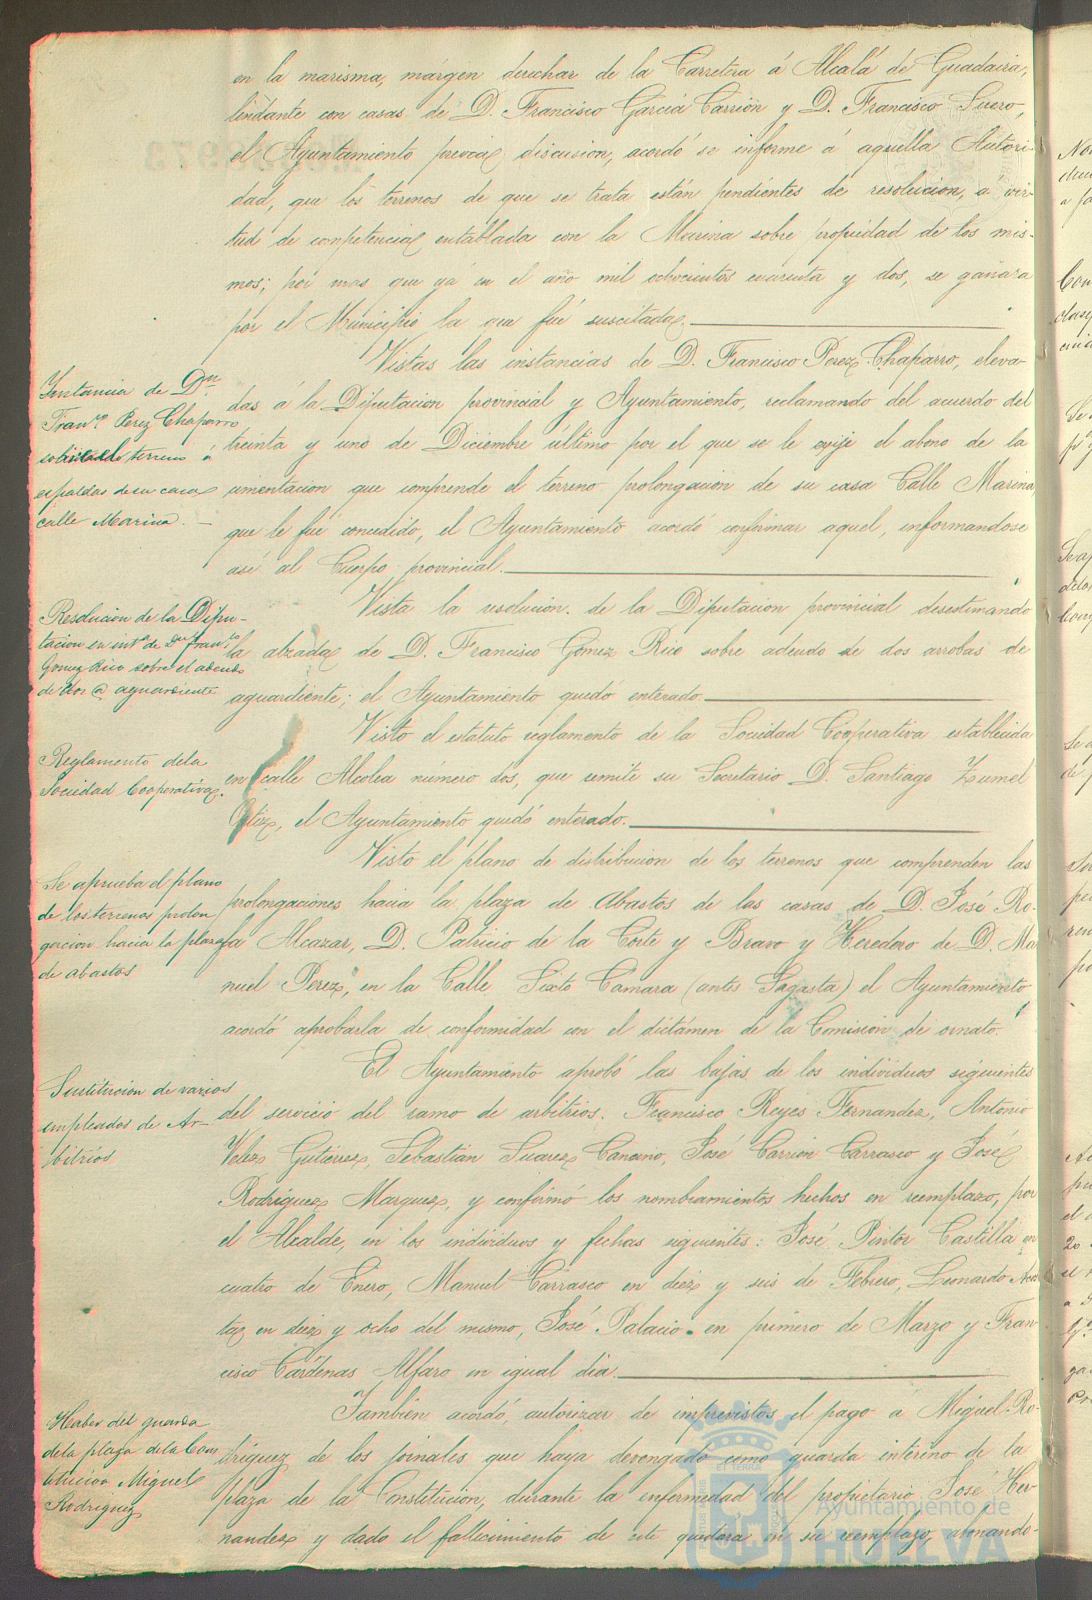 en la marisma, márgen derechar de la Carretera á Alcalá de Guadaira,
lindante con casas de D. Francisco Garcia Carrión y D. Francisco Suero,
el Ayuntamiento previa discusion, acordó se informe á aquella Autori-
dad, que los terrenos de que se trata están pendientes de resolucion, á vir-
tud de competencia entablada con la Marina sobre propiedad de los mis-
mos; por mas que ya en el año mil ochocientos cuarenta y dos, se ganara
por el Municipio la que fué suscitada.
Instancia de Dn.
Franco. Perez Chaparro
solicitando terreno á
espaldas de su casa
calle Marina.
Vistas las instancias de D. Francisco Perez Chaparro, eleva-
das á la Diputacion provincial y Ayuntamiento, reclamando del acuerdo del
treinta y uno de Diciembre último por el que se le exije el abono de la
cimentacion que comprende el terreno prolongacion de su casa Calle Marina
que le fué concedido, el Ayuntamiento acordó confirmar aquel, informandose
asi al Cuerpo provincial.
Resolucion de la Dipu-
tacion en inta. de Dn. Franco.
Gomez Rico sobre el adeudo
de dos @ aguardiente
Vista la resolucion de la Diputacion provincial desestimando
la alzada de D. Francisco Gomez Rico sobre adeudo de dos arrobas de
aguardiente; el Ayuntamiento quedó enterado.
Reglamento de la
Sociedad Cooperativa.
Visto el estatuto reglamento de la Sociedad Cooperativa establecida
en calle Alcolea número dos, que remite su Secretario D. Santiago Zumel
Ortiz, el Ayuntamiento quedó enterado.
Se aprueba el plano
de los terrenos prolon
gacion hacia la plaza
de abastos
Visto el plano de distribucion de los terrenos que comprenden las
prolongaciones hacia la plaza de Abastos de las casas de D. José Ro-
fa Alcazar, D. Patricio de la Corte y Bravo y Heredero de D. Ma-
nuel Perez, en la Calle Sixto Camara (antes Sagasta) el Ayuntamiento
acordó aprobarla de conformidad con el dictámen de la Comision de ornato.
Sustitucion de varios
empleados de Ar-
bitrios
El Ayuntamiento aprobó las bajas de los individuos siguientes
del servicio del ramo de arbitrios. Francisco Reyes Fernandez, Antonio
Velez Gutierrez, Sebastian Suarez Canceno, José Carrion Carrasco y José
Rodriguez Marquez, y confirmó los nombramientos hechos en reemplazo, por
el Alcalde, en los individuos y fechas siguientes: José Pintor Castilla en
cuatro de Enero, Manuel Carrasco en diez y seis de Febrero, Leonardo Acos
ta, en diez y ocho del mismo, José Palacio en primero de Marzo y Fran
cisco Cárdenas Alfaro en igual dia.
Haber del guarda
de la plaza de la Cons
titucion Miguel
Rodriguez
Tambien acordó, autorizar de imprevistos el pago á Miguel Ro-
driguez de los jornales que haya devengado como guarda interino de la
plaza de la Constitucion, durante la enfermedad del propietario José Her-
nandez y dado el fallecimiento de este quedara en su reemplazo, abonando-
Ayuntamiento de
HUELVA